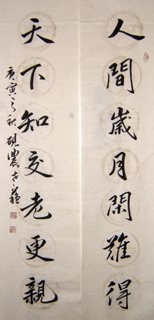 人間歲月閑難得
天下知交老更親
庚寅之秋硯農